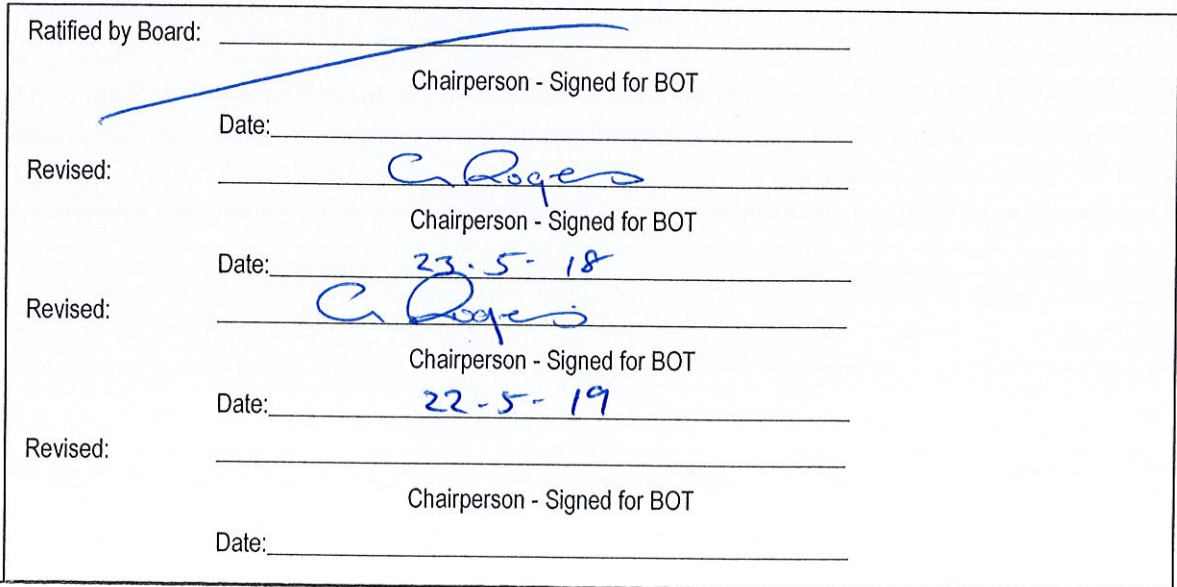 Ratified by Board:
Chairperson - Signed for BOT
Date:
Revised: G Rogers
Chairperson - Signed for BOT
Date: 23.5-18
Revised: G Rogers
Chairperson - Signed for BOT
Date: 22-5-19
Revised:
Chairperson - Signed for BOT
Date: